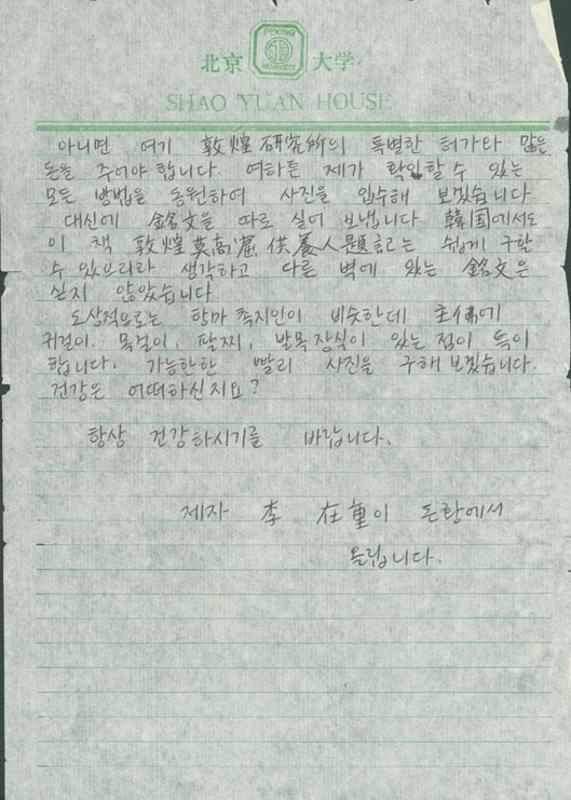 北京 大学
PEKING UNIVERSITY
SHAO YUAN HOUSE
아니면 여기 敦煌研究所의 특별한 허가와 많은
돈을 주어야 합니다. 여하튼 제가 확인할 수 있는
모든 방법을 동원하여 사진을 입수해 보겠습니다.
대신에 銘文을 따로 실어 보냅니다. 韓国에서도
이 책 敦煌莫高窟供養人題記는 쉽게 구할
수 있으리라 생각하고 다른 벽에 있는 銘文은
싣지 않았습니다.
도상적으로는 항마촉지인이 비슷한데 主佛에
귀걸이. 목걸이, 팔찌, 발목장식이 있는 점이 특이
합니다. 가능한한 빨리 사진을 구해 보겠습니다.
건강은 어떠하신지요?
항상 건강하시기를 바랍니다.
제자 李 在重이 돈황에서
올립니다.